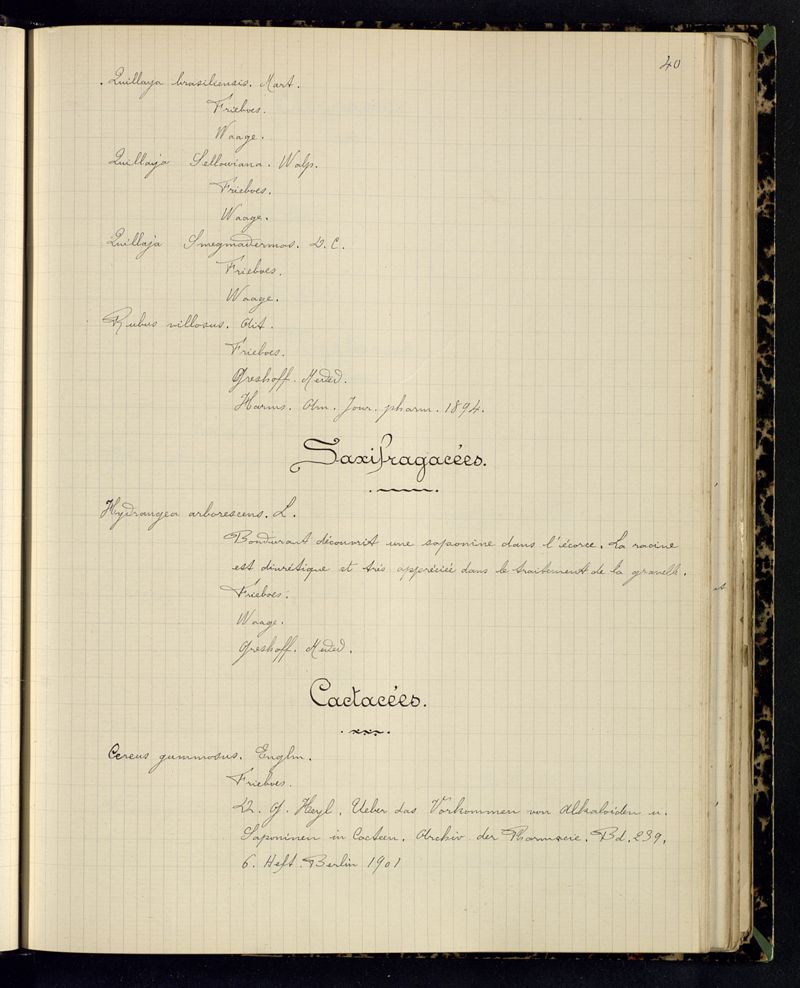 40
Quillaya brasiliensis. Mart.
Frieboes.
Waage.
Quillaja Sellowiana. Walp.
Frieboes.
Waage.
Quillaja Smegmadermos. D.C.
Frieboes.
Waage.
Rubus villosus. Ait.
Frieboes.
Greshoff. Meded.
Harms. Am. Jour. pharm. 1894.
Saxifragacées.
Hydrangea arborescens. L.
Bondurant découvrit une saponine dans l'écorce. La racine
est diurétique et très appréciée dans le traitement de la gravelle.
Frieboes.
Waage.
Greshoff. Meded.
Cactacées.
Cereus gummosus. Englm.
Frieboes.
G. Heyl. Ueber das Vorkommen von Alkaloiden u.
Saponinen in Cacteen. Archiv der Pharmacie. Bd. 239.
6. Heft. Berlin 1901